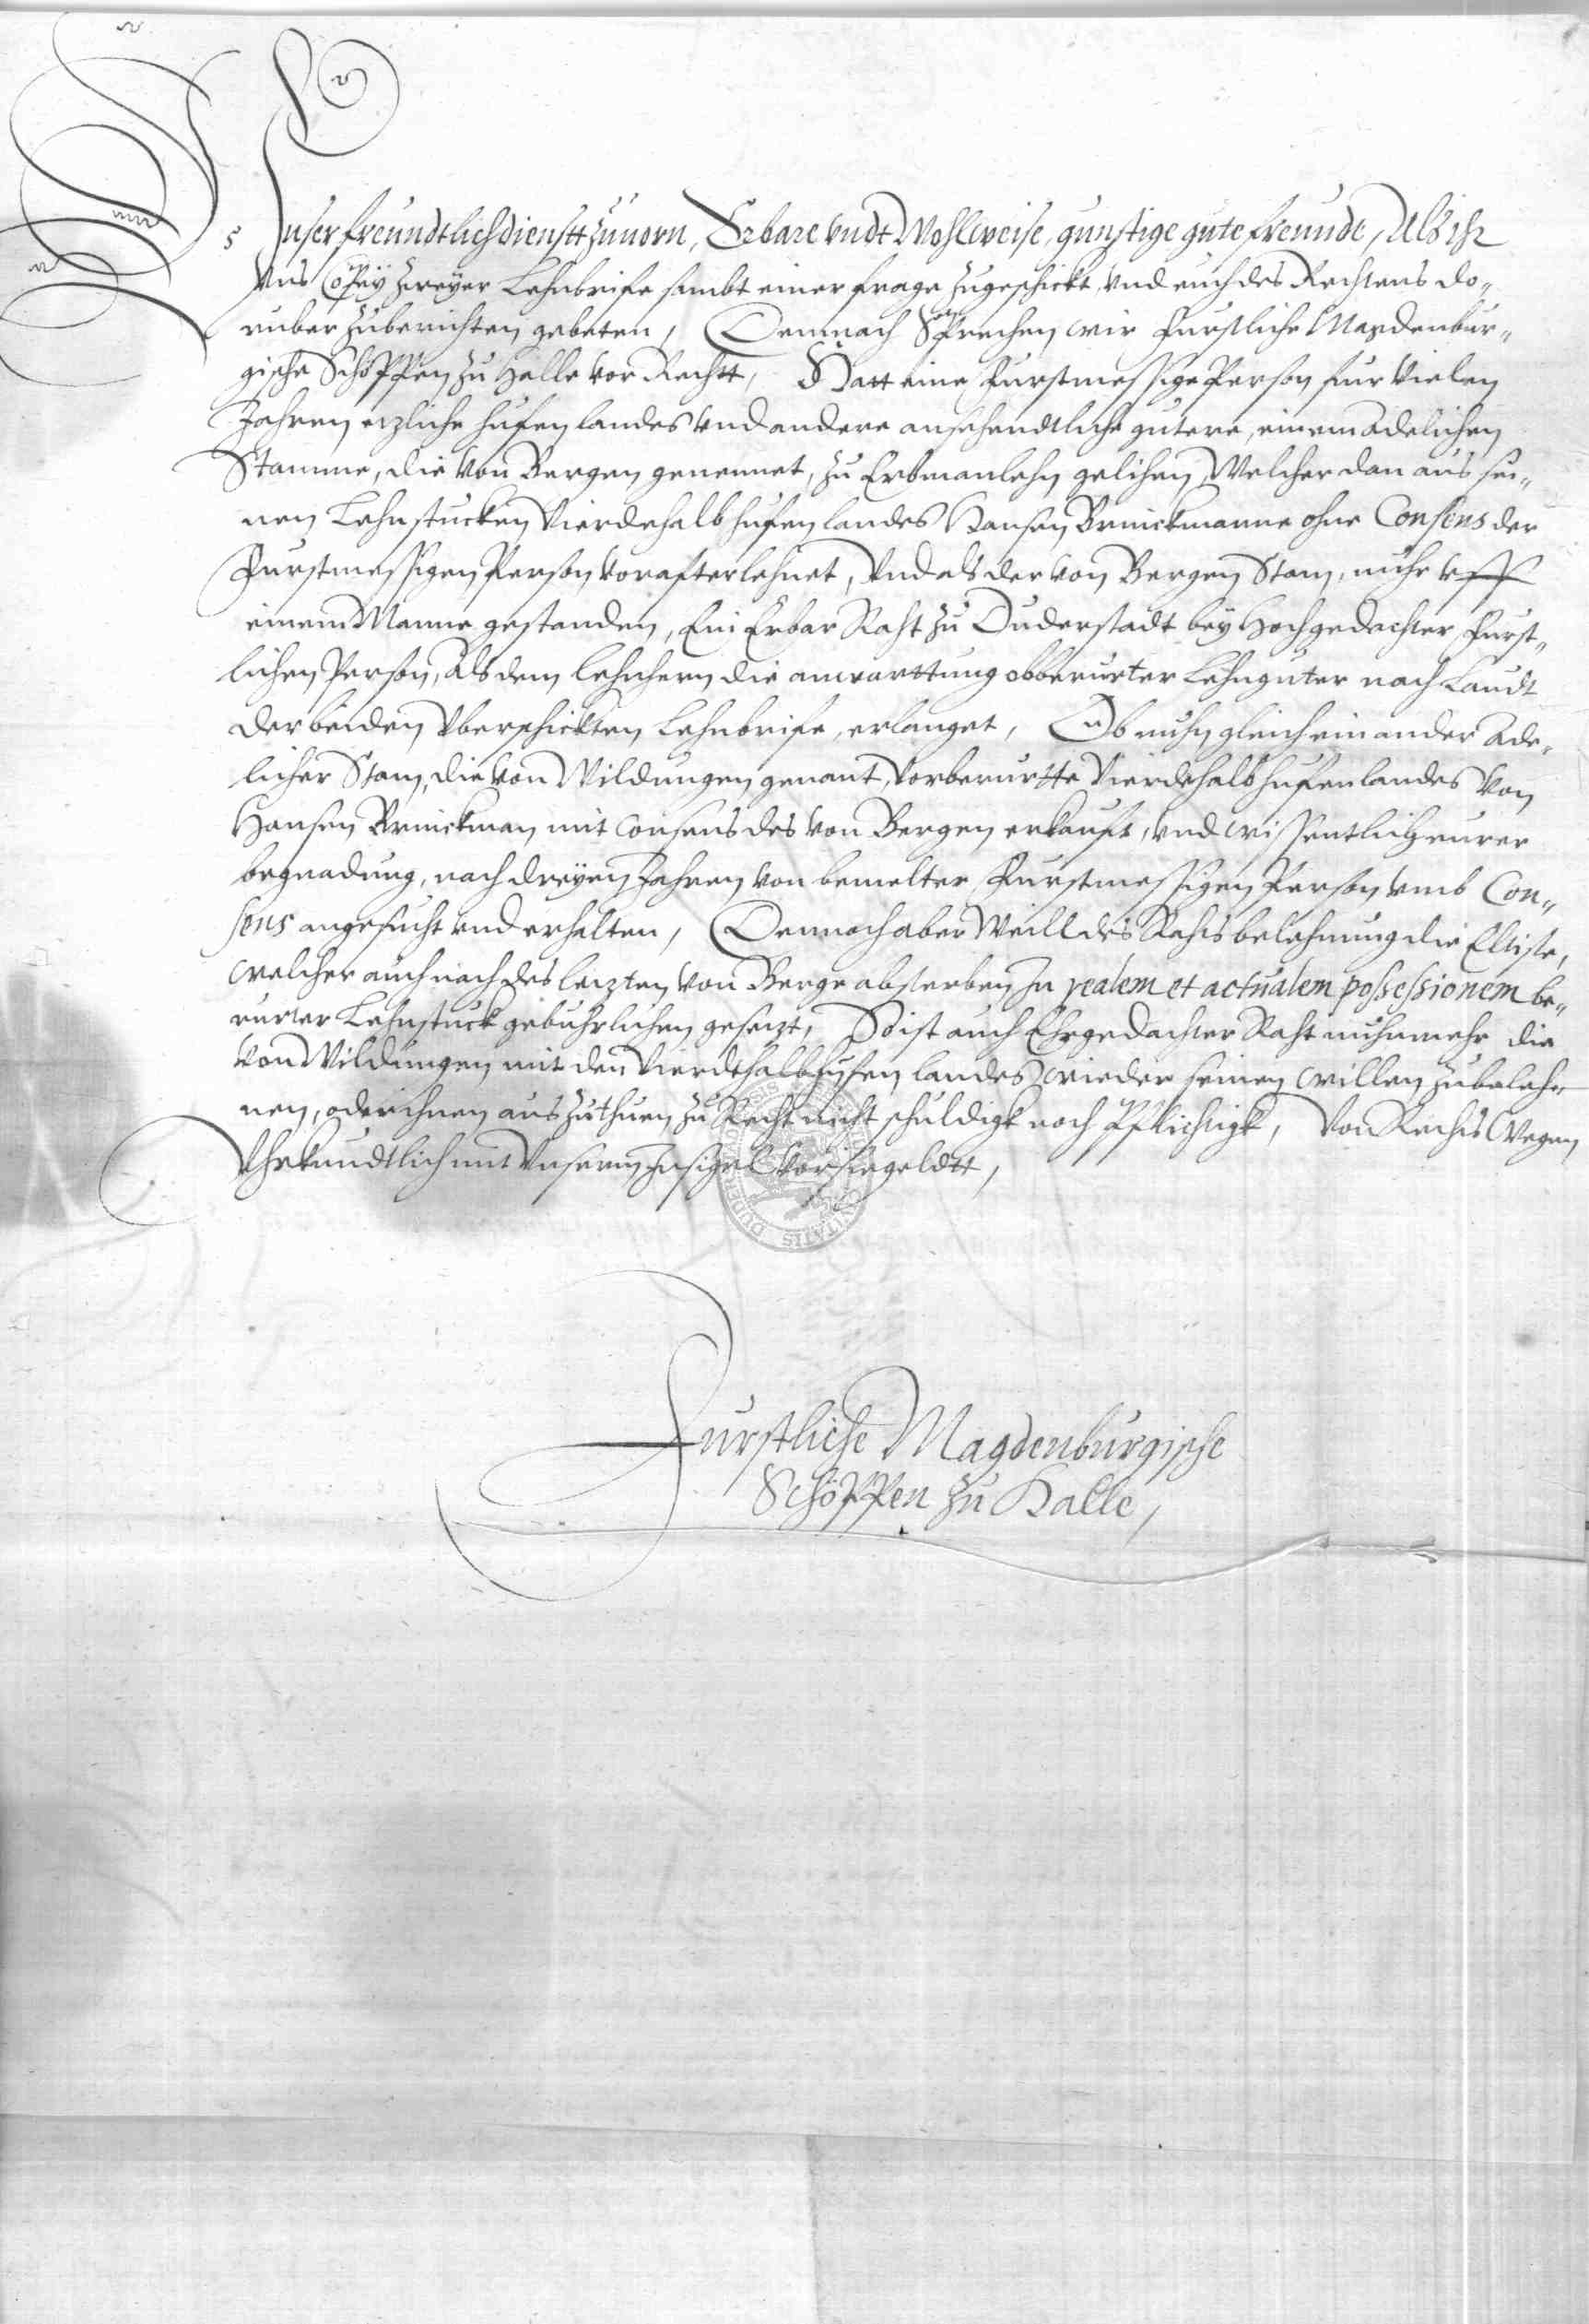 Unser freundtlich dienstt zuuorn, Erbare vndt Wohlweise, gunstige gute freunde, Als ihr
Vns Copey zweyer Lehnbrife sambt einer frage zugeschickt, vnd euch des Rechtens do-
ruber zuberichten gebeten, Demnach Sprechen wir Furstliche Magdenbur-
gische Schöppen zu Halle vor Rechtt, Hatt eine Furstmessige Person fur vielen
Jahren etzliche hufen landes vnd andere ansehendtliche gutere, einem Adelichen
Stamme, die von Bergen genennet, zu Erbmanlehn gelihen, Welcher dan aus sei-
nen Lehnstucken vierdehalb hufen landes Hansen Brinckmanne ohne Consens der
Furstmessigen Person vorafterlehnet, Vnd als der von Bergen Stam, nuhr vff
einem Manne gestanden, Ein Erbar Raht zu Duderstadt bey hochgedachter Furst-
lichen Person, Als dem Lehnhern die anwarttung obberurter Lehnguter nach Laudt
der beiden vberschickten Lehnbrife, erlanget, Ob nuhn gleich ein ander Ade-
licher Stam, die von Wildungen genant, vorberurtte vierdehalb hufen landes von
Hansen Brinckman mit Consens des von Bergen erkauft, vnd wissentlich eurer
begnadung, nach dreyen Jahren von bemelter Furstmessigen Person vmb Con-
sens angesucht vnd erhalten, Dennoch aber Weill des Rahts belehnung die Elteste,
welcher auch nach des letzten von Berge absterben In realem et actualem possessionem be-
rurter Lehnstuck gebuhrlichen gesetzt, So ist auch Ehrgedachter Raht nuhnmehr die
von Wildungen mit den vierdehalb hufen landes wieder seinen willen zubeleh-
nen, oder ihnen auszuthuen zu Recht nicht schuldigk noch Pflichtigk, Von Rechts Wegen,
Vhrkundtlich mit Vnserm Insigel vorsiegeldtt,
Furstliche Magdenburgische
Schöppen zu Halle,